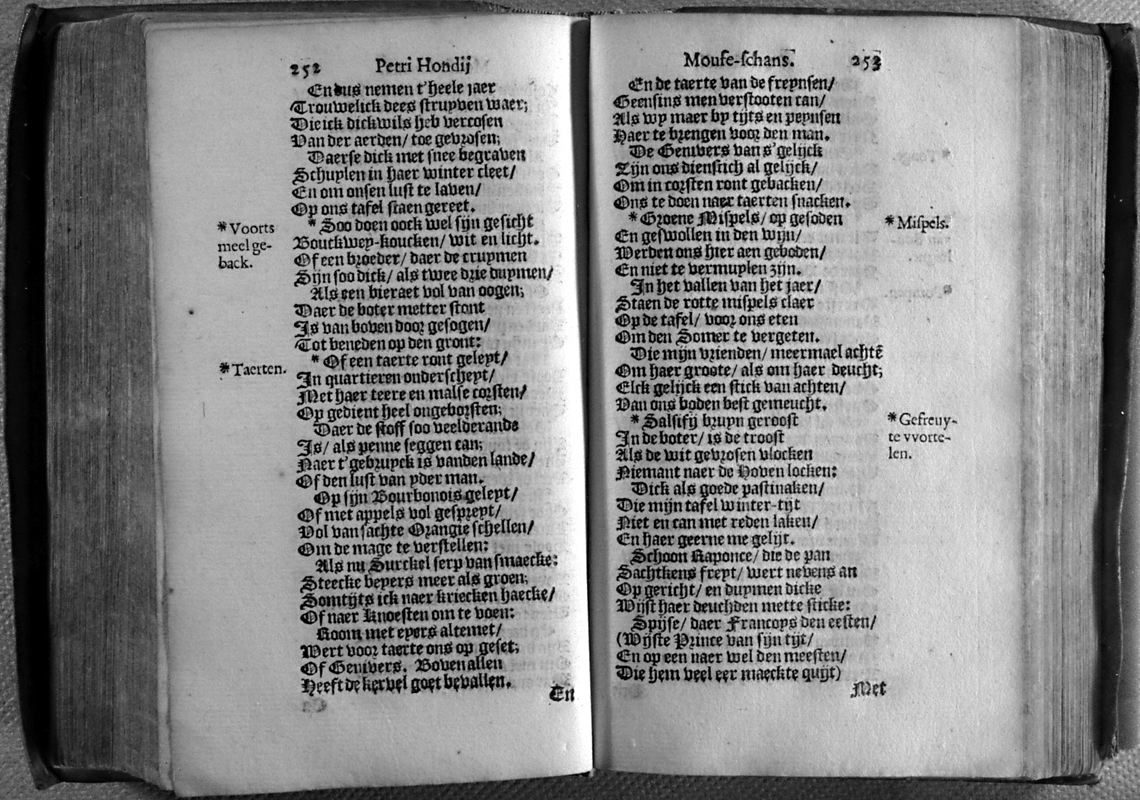 252 Petri Hondij
En dus nemen t'heele jaer
Trouwelick dees struyven waer;
Die ick dickwils heb vercosen
Van der aerden/ toe gevrosen;
Daerse dick met snee begraven
Schuylen in haer winter cleet/
En om onsen lust te laven/
Op ons tafel staen gereet.
* Soo doen oock wel sijn gesicht
Bouckwey-koucken/ wit en licht.
Of een broeder/ daer de cruymen
Sijn soo dick/ als twee drie duymen/
Als een bieraet vol van oogen;
Daer de boter metter stont
Is van boven door gesogen/
Tot beneden op den gront:
* Of een taerte ront geleyt/
In quartieren onderscheyt/
Met haer teere en malse corsten/
Op gedient heel ongeborsten;
Daer de stoff soo veelderande
Is/ als penne seggen can;
Naer t'gebruyck is vanden lande/
Of den lust van yder man.
Op sijn Bourbonois geleyt/
Of met appels vol gespreyt/
Vol van sachte Orangie schellen/
Om de mage te verstellen:
Als nu Surckel serp van smaecke:
Steecke beyers meer als groen;
Somtijts ick naer kriecken haecke/
Of naer Knoesten om te voen:
Room met eyers altemet/
Wert voor taerte ons op geset;
Of Genivers. Boven allen
Heeft de kervel goet bevallen.
En
* Voorts
meel ge-
back.
* Taerten.
Mouse-schans. 253
En de taerte van de freynsen/
Geensins men verstooten can/
Als wy maer by tijts en peynsen
Haer te brengen voor den man.
De Genivers van s'gelijck
Zijn ons dienstich al gelijck/
Om in corsten ront gebacken/
Ons te doen naer taerten snacken.
* Groene Mispels/ op gesoden
En geswollen in den wijn/
Werden ons hier aen geboden/
En niet te vermuylen zijn.
In het vallen van het jaer/
Staen de rotte mispels claer
Op de tafel/ voor ons eten
Om den Somer te vergeten.
Die mijn vrienden/ meermael achtē
Om haer groote/ als om haer deucht;
Elck gelijck een stick van achten/
Van ons boden best gemeucht.
* Salsifij bruyn geroost
In de boter/ is de troost
Als de wit gevrosen vlocken
Niemant naer de Hoven locken:
Dick als goede pastinaken/
Die mijn tafel winter-tijt
Niet en can met reden laken/
En haer geerne me gelijt.
Schoon Raponce/ die de pan
Sachtkens freyt/ wert nevens an
Op gericht/ en duymen dicke
Wijst haer deuchden mette sticke:
Spijse/ daer Francoys den eesten/
(Wijste Prince van sijn tijt/
En op een naer wel den meesten/
Die hem veel eer maeckte quijt)
Met
* Mispels.
* Gefreuy-
te vvorte-
len.